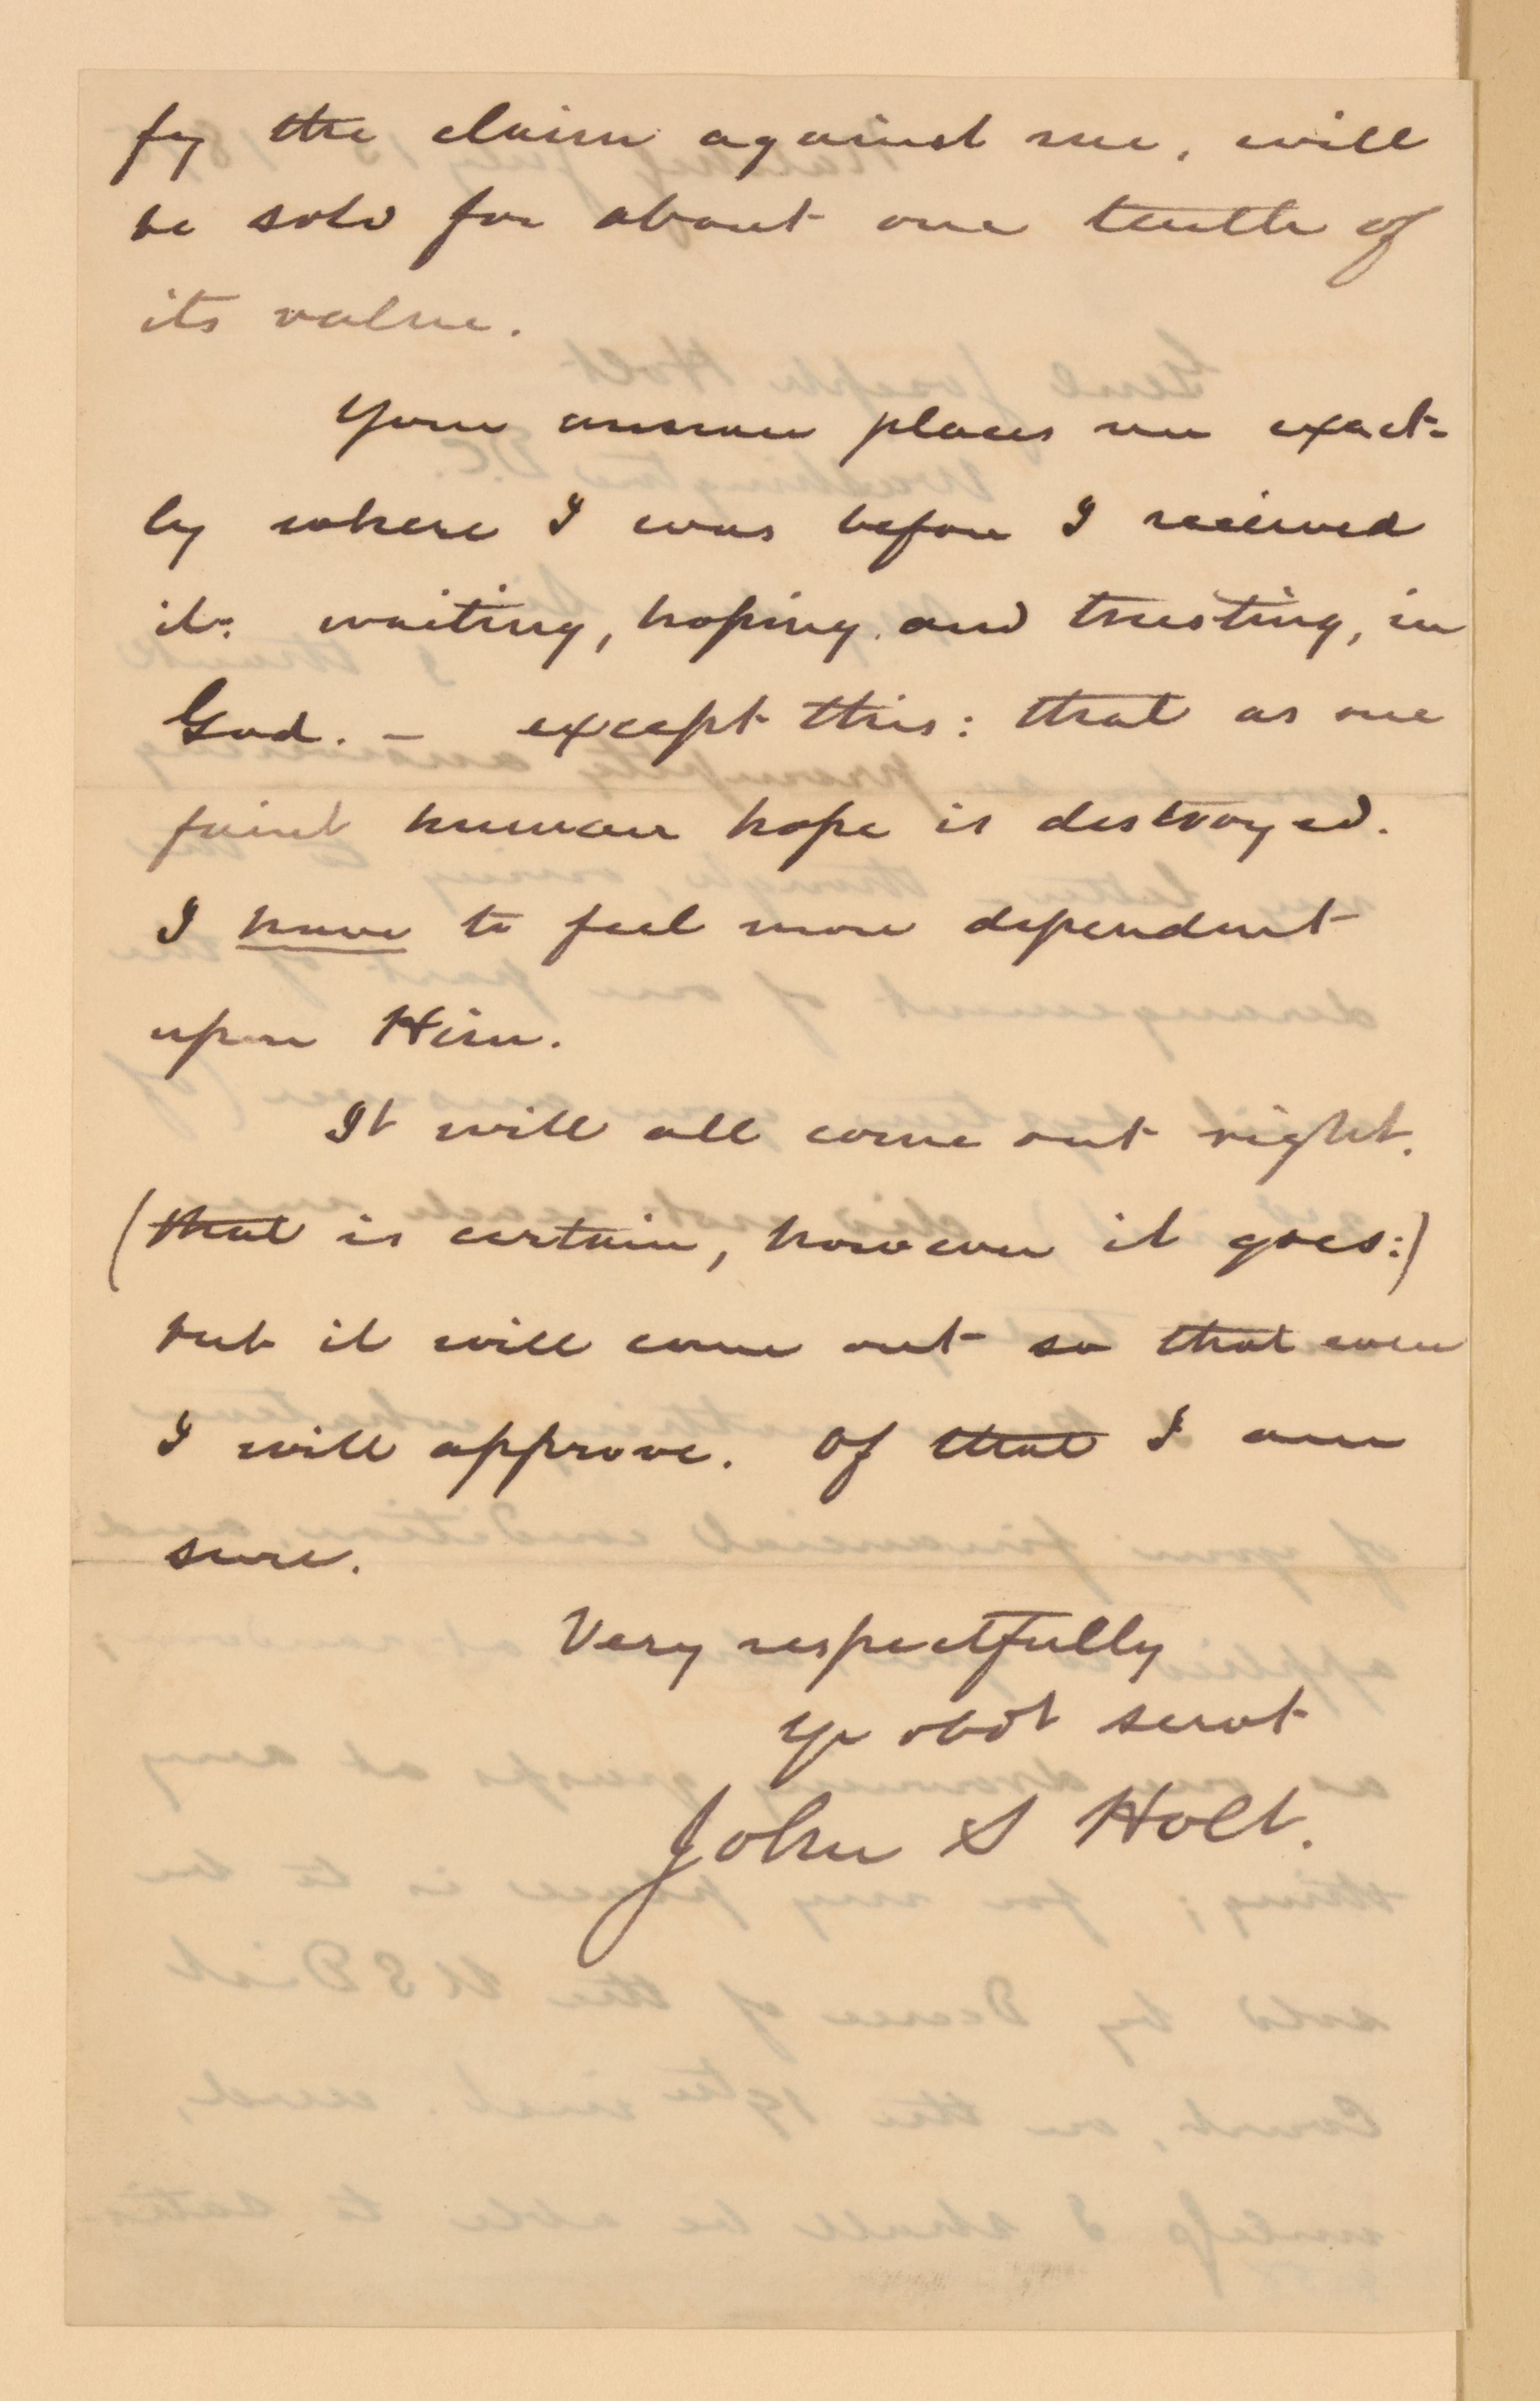 fy the claim against me, will
be sold for about one tenth of
its value.
Your answer places me exact-
ly where I was before I received
it: waiting, hoping, and trusting, in
God. – except this: that as one
faint human hope is destroyed.
I have to feel more dependent
upon Him.
It will all come out right.
(that is certain, however it goes:)
but it will come out so that even
I will approve. Of that I am
sure.
Very respectfully
Yr obdt servt
John S Holt.